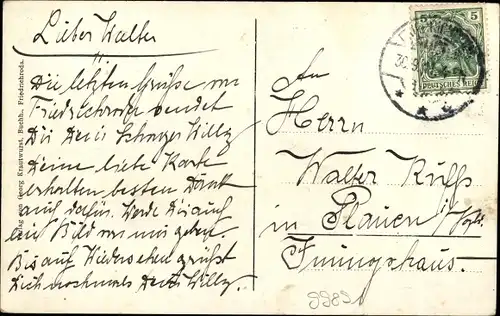 Lieber Walter
Die letzten Grüße von
Friedrichroda sendet
Dir Dein Schwager Willy
Deine liebe Karte
erhalten besten Dank
auf dafür. Werde Dir auch
ein Bild von uns
Bis auf Wiedersehen grüßt
Dich nochmals Dein Willy.
Verlag von Georg Krautwurst, Buchh., Friedrichroda.
5 5
DEUTSCHES REICH
An
Herrn
Walter Ruß
in Plauen i/Vgtl.
Innungshaus.
5989